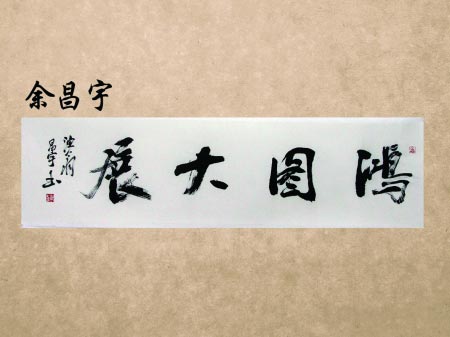 余昌宇
鸿图大展
昌宇书